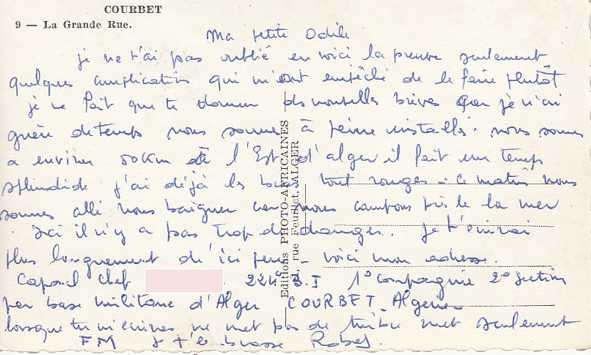 COURBET
9 — La Grande Rue.
Ma petite Odile
je ne t'ai pas oublié en voici la preuve seulement
quelques complications qui m'ont empêché de le faire plutôt
je ne fait que te donner des nouvelles brèves car je n'ai
guère de temps nous sommes à peine installés. nous sommes
a environ 50 Km de l'Est d'alger il fait un temps
splendide j'ai déjà les bras tout rouges. ce matin nous
sommes allé nous baigner car nous campons près de la mer
ici il n'y a pas trop de danger. je t'écrirai
plus longuement d'ici peu. voici mon adresse.
Caporal chef 224e B.I 1e compagnie 2e section
par base militaire d'Alger COURBET Algérie
lorsque tu m'écriras ne met pas de timbre met seulement
FM je t'embrasse
Editions PHOTO-AFRICAINES
rue Feuillet, ALGER